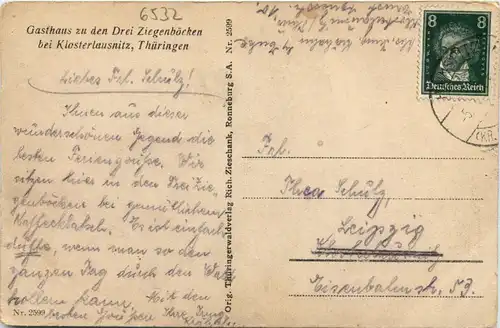 6532
Gasthaus zu den Drei Ziegenböcken
bei Klosterlausnitz, Thüringen
Liebes Frl. Schulz!
Ihnen aus dieser
wunderschönen Gegend die
besten Feriengrüße. Wir
sitzen hier in den Drei Zie-
genböcken bei gemütlichem
Kaffeeklatsch. Es ist einfach
dufte, wenn man so den
ganzen Tag durch den Wald
tollen kann. Mit den
besten Grüßen Ihre
Nr. 2599
Orig. Thüringerwaldverlag Rich. Zieschank, Ronneburg S.A. Nr. 2599
8 8
Deutsches Reich
Frl.
Thea Schulz,
Leipzig
Eisenbahnstr. 53.